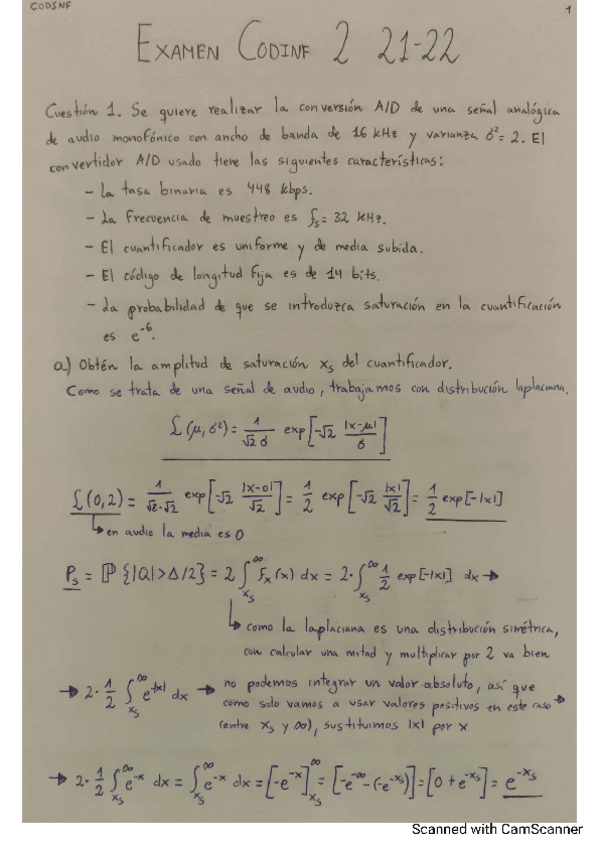 CODINF
1
EXAMEN CODINF 2 21-22
Cuestión 1. Se quiere realizar la conversión A/D de una señal analógica
de audio monofónico con ancho de banda de 16 kHz y varianza σ²=2. El
convertidor A/D usado tiene las siguientes características:
- La tasa binaria es 448 kbps.
- La frecuencia de muestreo es fs = 32 kHz.
- El cuantificador es uniforme y de media subida.
- El código de longitud fija es de 14 bits.
- La probabilidad de que se introduzca saturación en la cuantificación
es e⁻⁶.
a) Obtén la amplitud de saturación xs del cuantificador.
Como se trata de una señal de audio, trabajamos con distribución laplaciana.
L(μ,σ²) = 1/(√2 σ) exp[-√2 |x-μ|/σ]
L(0,2) = 1/(√2·√2) exp[-√2 |x-0|/√2] = 1/2 exp[-√2 |x|/√2] = 1/2 exp[-|x|]
↳ en audio la media es 0
Ps = P{|Q|>Δ/2} = 2∫xs^∞ fx(x) dx = 2·∫xs^∞ 1/2 exp[-|x|] dx →
↳ como la laplaciana es una distribución simétrica,
con calcular una mitad y multiplicar por 2 va bien
→ 2·1/2 ∫xs^∞ e^-|x| dx → no podemos integrar un valor absoluto, así que
como solo vamos a usar valores positivos en este caso →
(entre xs y ∞), sustituimos |x| por x
→ 2·1/2 ∫xs^∞ e^-x dx = ∫xs^∞ e^-x dx = [-e^-x]xs^∞ = [-e^-∞-(-e^-xs)] = [0+e^-xs] = e^-xs
Scanned with CamScanner